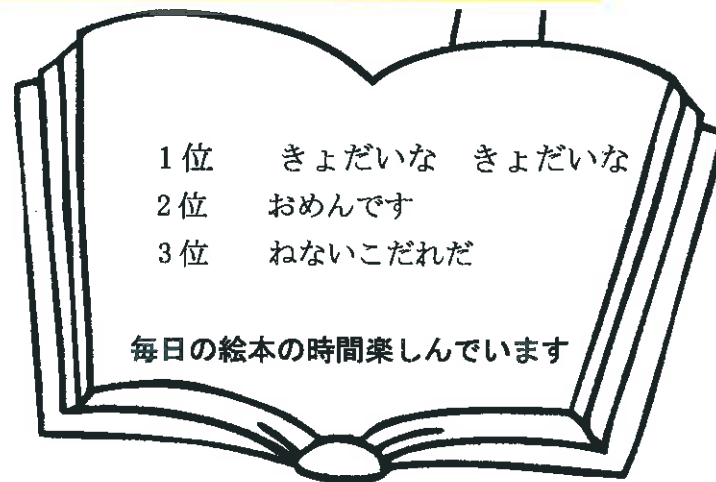 1位　きょだいな　きょだいな
2位　おめんです
3位　ねないこだれだ
毎日の絵本の時間楽しんでいます